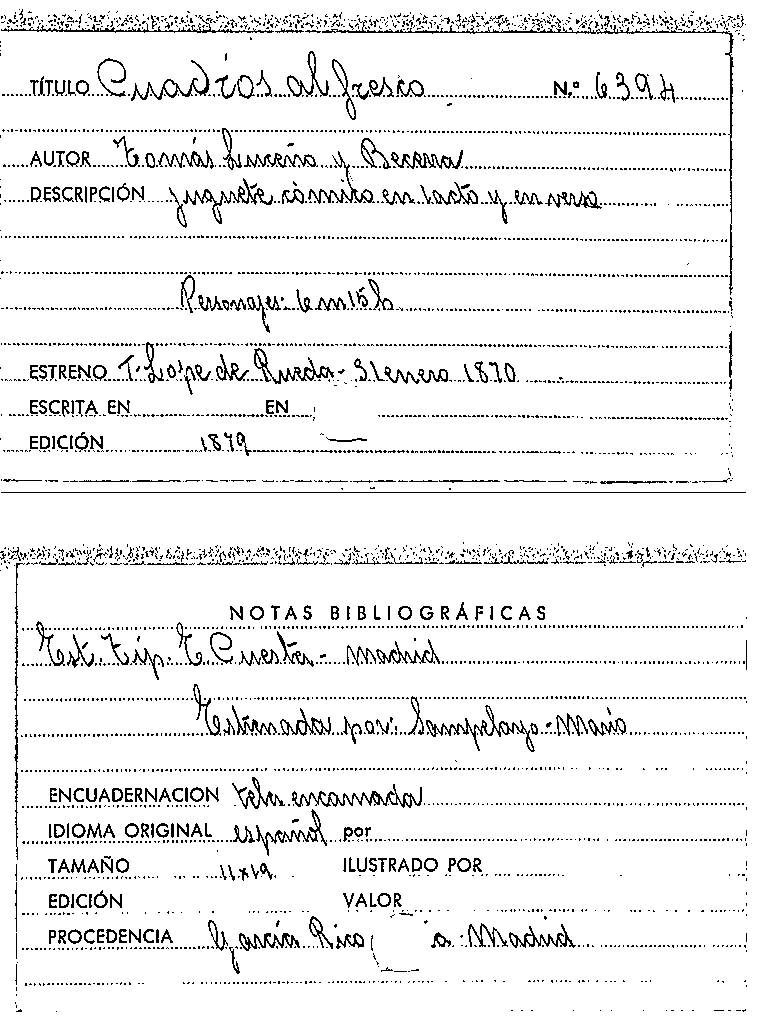 TÍTULO Cuadros al fresco N.º 6394
AUTOR Tomás Luceño y Becerra
DESCRIPCIÓN juguete cómico en 1 acto y en verso
Personajes: 6 m 15 h
ESTRENO T. Lope de Rueda - 31 enero 1870
ESCRITA EN EN
EDICIÓN 1879
NOTAS BIBLIOGRÁFICAS
Est. Tip. E Cuesta - Madrid
Estrenada por: Sampelayo - Mario
ENCUADERNACION tela encarnada
IDIOMA ORIGINAL español por
TAMAÑO 11x19 ILUSTRADO POR
EDICIÓN VALOR
PROCEDENCIA García Rico a - Madrid